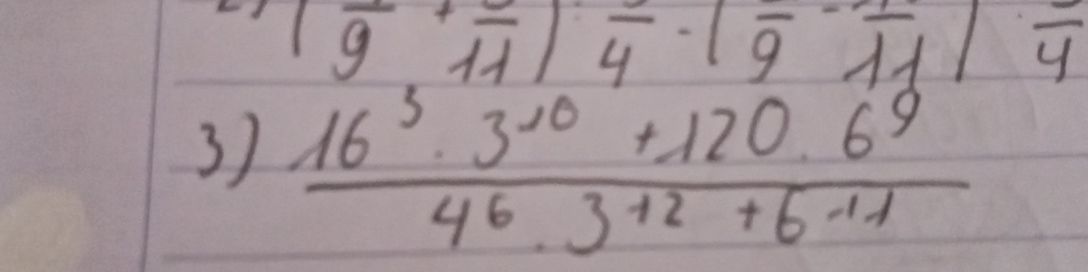 9 11 4 - 9 - 11 4
3) 16^3 . 3^10 + 120 . 6^9
4^6 . 3^12 + 6^11